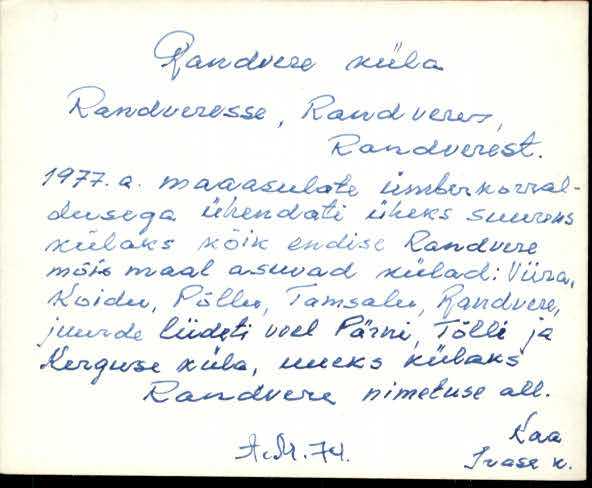 Randvere küla
Randveresse, Randveres,
Randverest.
1977. a. maaasulate ümberkorral-
dusega ühendati üheks suureks
külaks kõik endise Randvere
mõis maal asuvad külad: Viira,
Koidu, Põllu, Tamsalu, Randvere,
juurde liideti veel Pärni, Tõlli ja
Kerguse küla, uueks külaks
Randvere nimetuse all.
Kaa
A.M. 74.
Irase k.